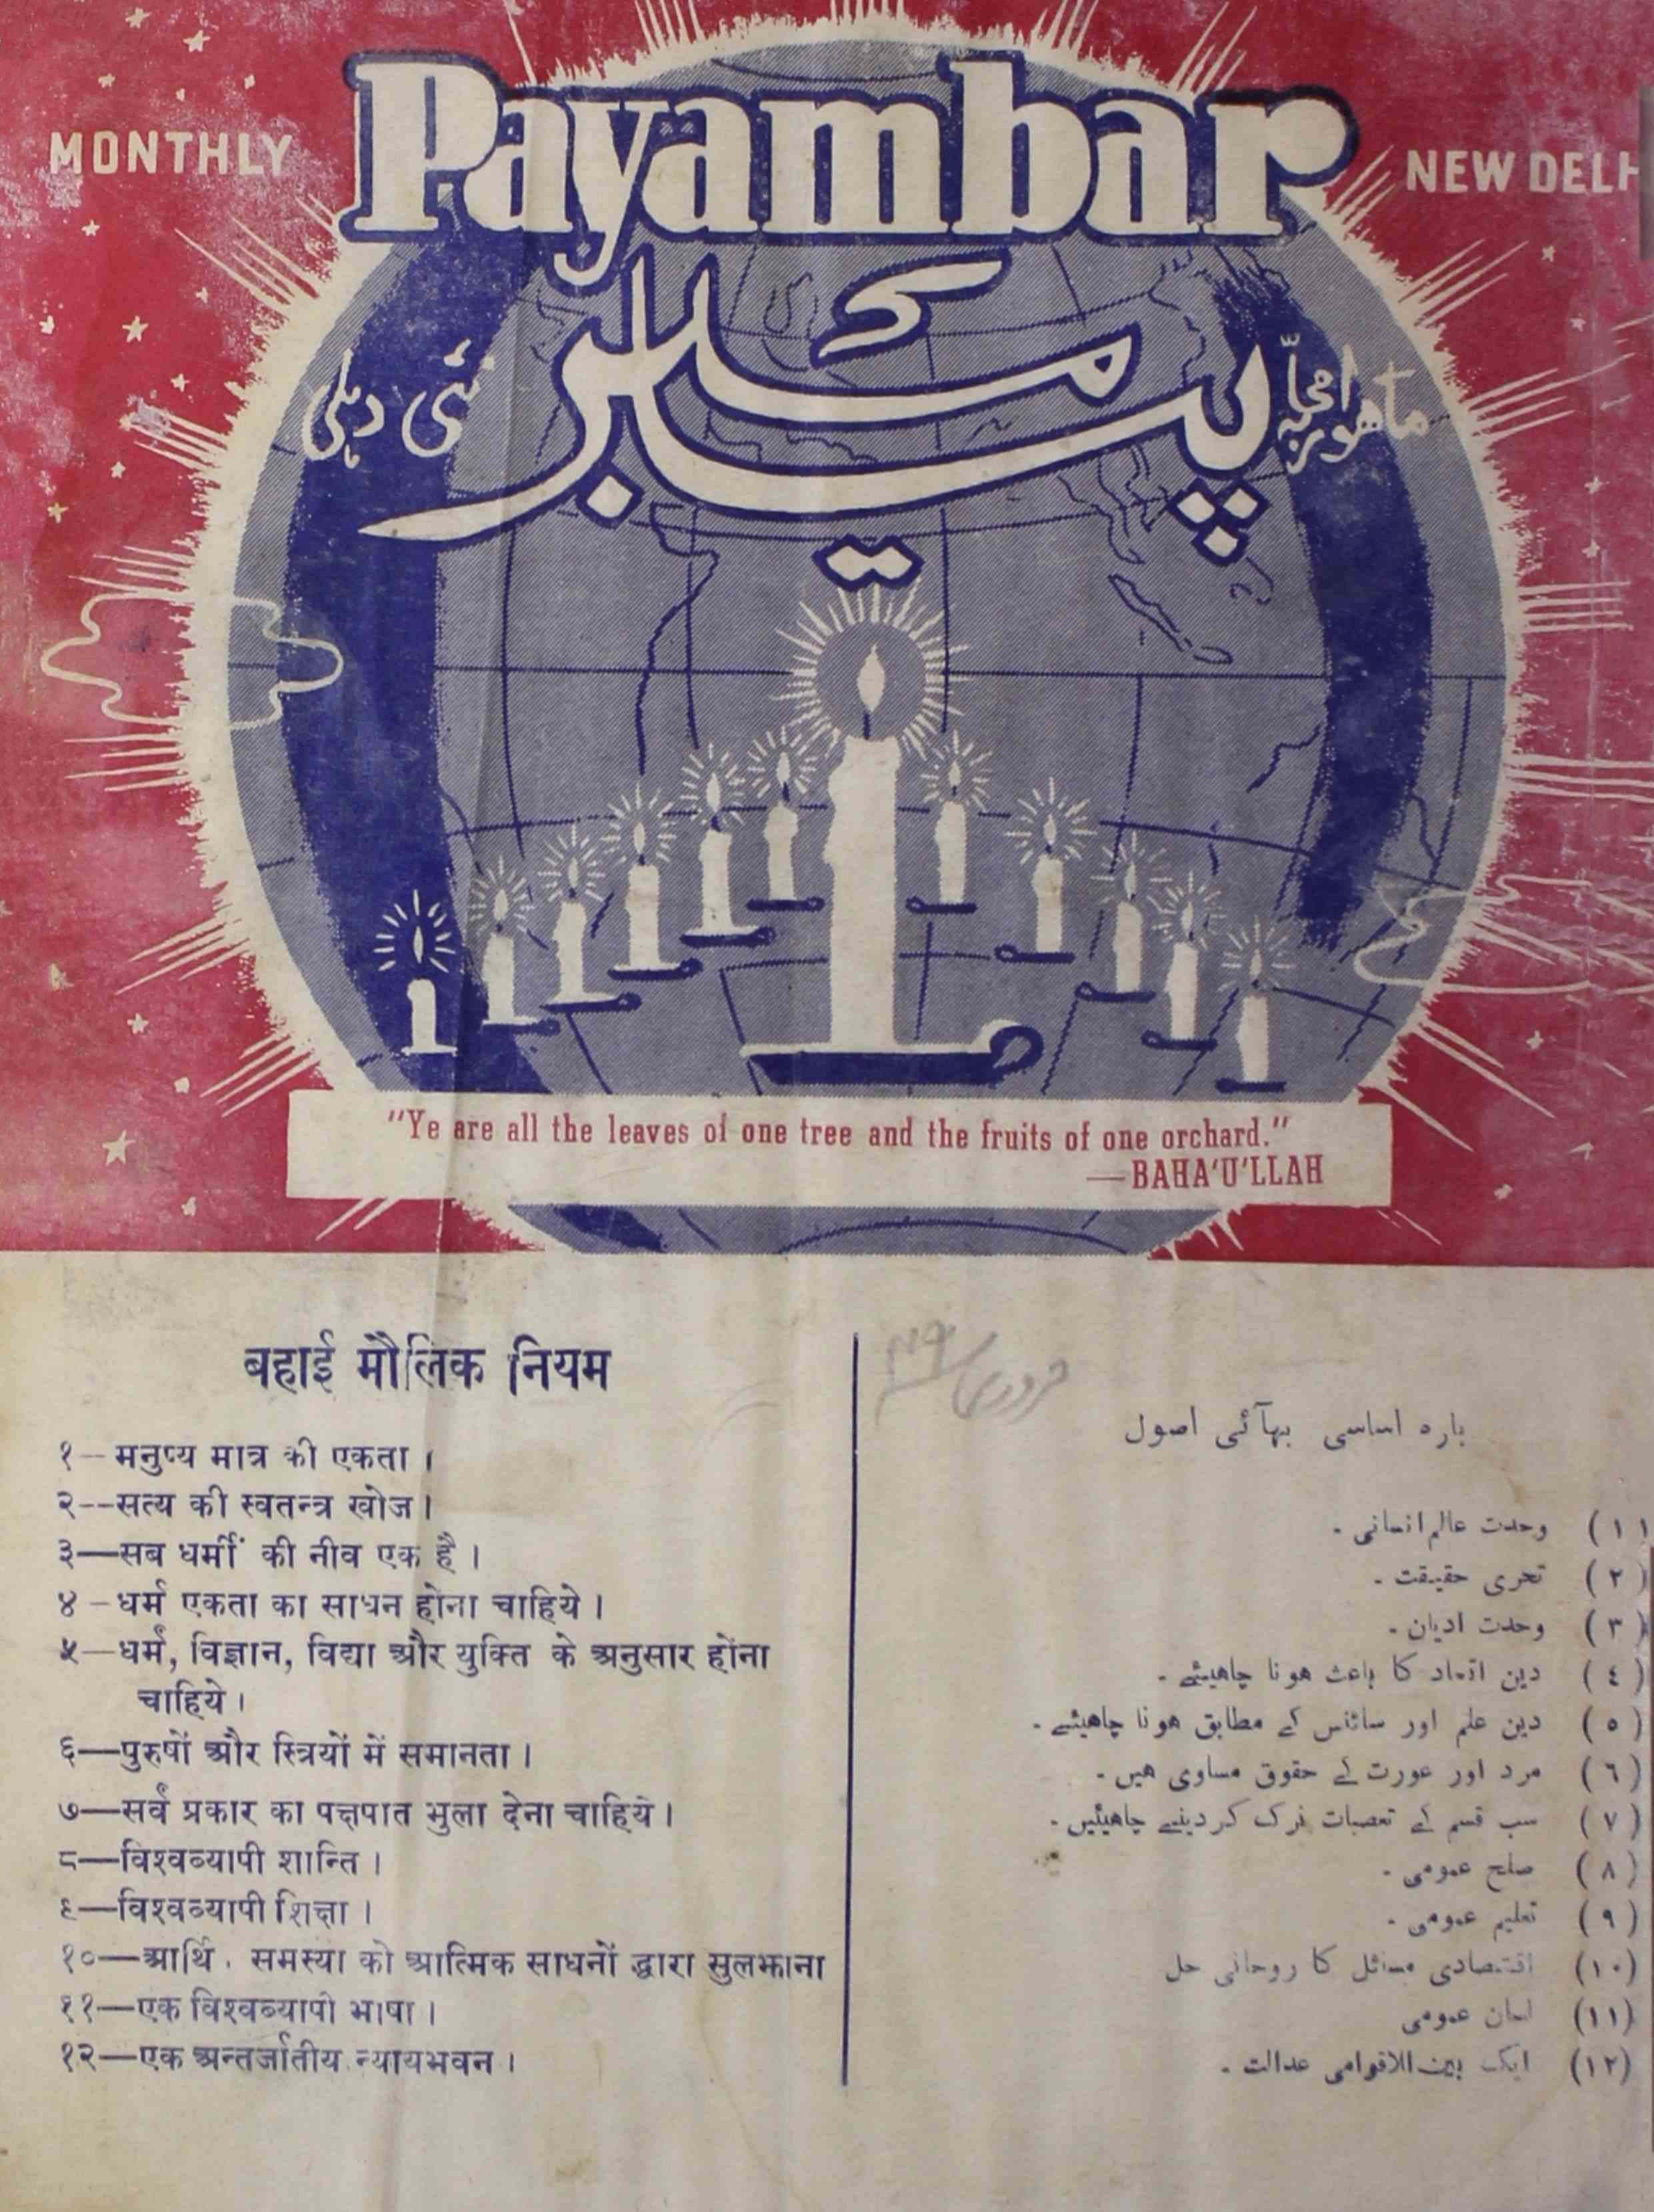 MONTHLY
Payambar
NEW DELH
پیامبر
نئی دہلی
"Ye are all the leaves of one tree and the fruits of one orchard."
—BAHA'U'LLAH
बहाई मौलिक नियम
१—मनुष्य मात्र की एकता ।
२--सत्य की स्वतन्त्र खोज ।
३—सब धर्मों की नीव एक है ।
४—धर्म एकता का साधन होना चाहिये ।
५—धर्म, विज्ञान, विद्या और युक्ति के अनुसार होना
चाहिये ।
६—पुरुषों और स्त्रियों में समानता ।
७—सर्व प्रकार का पक्षपात भुला देना चाहिये ।
८—विश्वव्यापी शान्ति ।
९—विश्वव्यापी शिक्षा ।
१०—आर्थि. समस्या को आत्मिक साधनों द्वारा सुलझाना
११—एक विश्वव्यापी भाषा ।
१२—एक अन्तर्जातीय न्यायभवन ।
فروری
بارہ اساسی بہآئی اصول
(۱) وحدت عالم انسانی -
(۲) تحری حقیقت -
(۳) وحدت ادیان -
(٤) دین اتحاد کا باعث ھونا چاھیئے -
(٥) دین علم اور سائنس کے مطابق ھونا چاھیئے -
(٦) مرد اور عورت کے حقوق مساوی ھیں -
(۷) سب قسم کے تعصبات ترک کر دینے چاھیئیں -
(۸) صلح عمومی -
(۹) تعلیم عمومی -
(۱۰) اقتصادی مسائل کا روحانی حل
(۱۱) لسان عمومی
(۱۲) ایک بین الاقوامی عدالت -